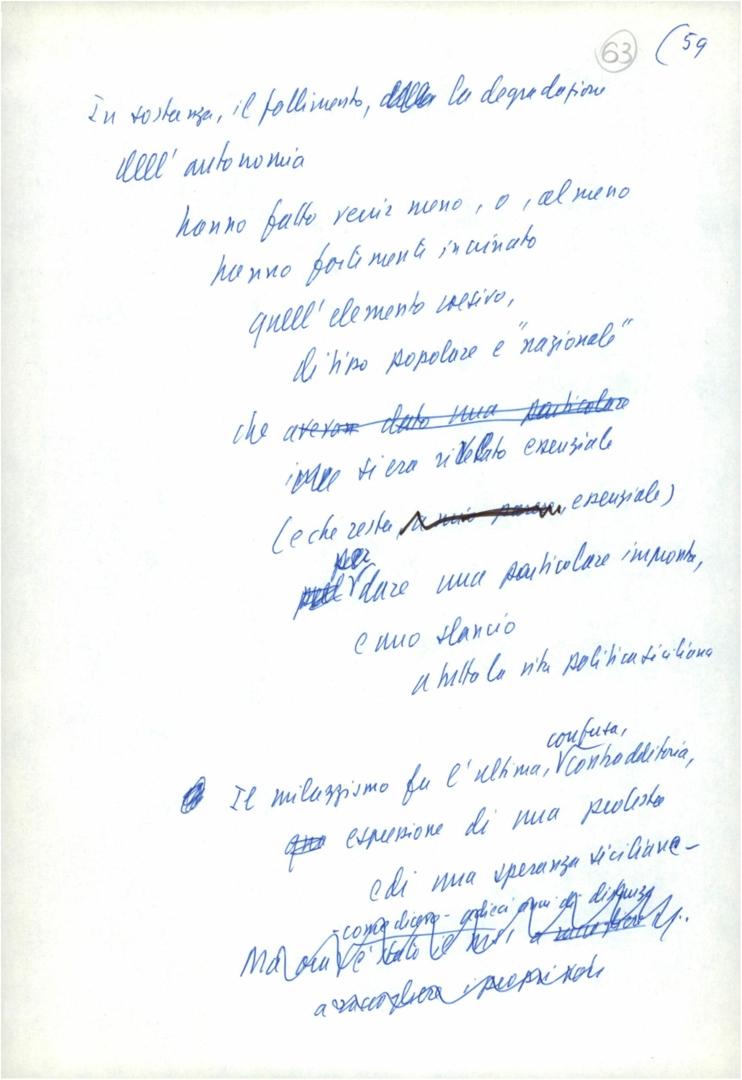 63 (59
In sostanza, il fallimento, della la degradazione
dell' autonomia
hanno fatto venir meno, o, almeno
hanno fortemente incrinato
quell' elemento coesivo,
di tipo popolare e "nazionale"
che aveva dato una particolare
si era rivelato essenziale
(e che resta, a mio parere, essenziale)
per
dare una particolare impronta,
e uno slancio
a tutta la vita politica siciliana
confusa,
Il milazzismo fu l'ultima, contraddittoria,
espressione di una protesta
e di una speranza siciliane-
- come dicevo - anni di distanza
Ma ora c'è stato il a
a raccogliere i